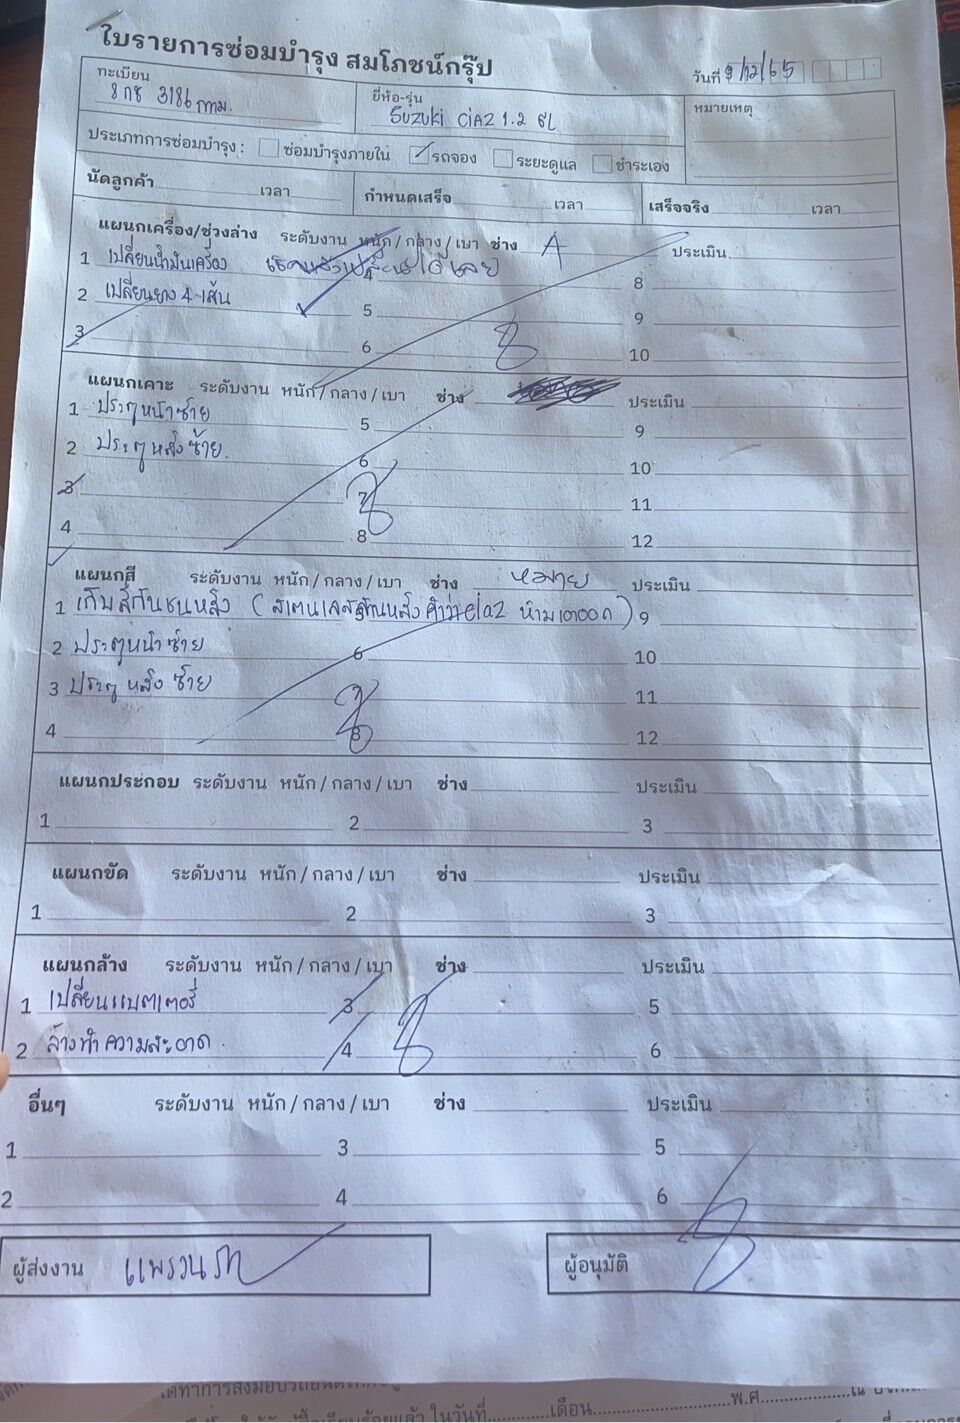 ใบรายการซ่อมบำรุง สมโภชน์กรุ๊ป
วันที่ 9/12/65
ทะเบียน
8 กธ 3186 กทม.
ยี่ห้อ-รุ่น
Suzuki CiAZ 1.2 GL
หมายเหตุ
ประเภทการซ่อมบำรุง : ซ่อมบำรุงภายใน รถจอง ระยะดูแล ชำระเอง
นัดลูกค้า เวลา กำหนดเสร็จ เวลา เสร็จจริง เวลา
แผนกเครื่อง/ช่วงล่าง ระดับงาน หนัก/กลาง/เบา ช่าง A ประเมิน
1 เปลี่ยนน้ำมันเครื่อง 4 8
2 เปลี่ยนยาง 4 เส้น 5 9
3 6 10
แผนกเคาะ ระดับงาน หนัก/กลาง/เบา ช่าง ประเมิน
1 ประตูหน้าซ้าย 5 9
2 ประตูหลังซ้าย. 6 10
3 7 11
4 8 12
แผนกสี ระดับงาน หนัก/กลาง/เบา ช่าง หมาย ประเมิน
1 เก็บสีกันชนหลัง (สแตนเลสด้านหลังคำว่า ciaz ห้ามเอาออก) 9
2 ประตูหน้าซ้าย 6 10
3 ประตูหลังซ้าย 7 11
4 8 12
แผนกประกอบ ระดับงาน หนัก/กลาง/เบา ช่าง ประเมิน
1 2 3
แผนกขัด ระดับงาน หนัก/กลาง/เบา ช่าง ประเมิน
1 2 3
แผนกล้าง ระดับงาน หนัก/กลาง/เบา ช่าง ประเมิน
1 เปลี่ยนแบตเตอรี่ 3 5
2 ล้างทำความสะอาด. 4 6
อื่นๆ ระดับงาน หนัก/กลาง/เบา ช่าง ประเมิน
1 3 5
2 4 6
ผู้ส่งงาน แพรวนภา
ผู้อนุมัติ
ได้ทำการส่งมอบรถยนต์
เรียบร้อยแล้ว ในวันที่ เดือน พ.ศ. ณ